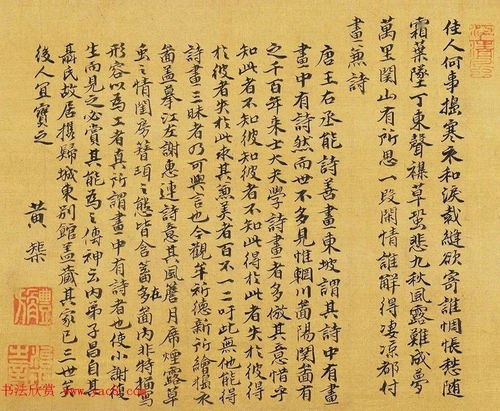 佳人何事搗寒衣和淚裁縫欲寄誰惆悵愁随
霜葉墜丁東聲襍草蛩悲九秋風露難成夢
萬里関山有所思一段閑情誰解得凄凉都付
畫兼詩
唐王右丞能詩善畫東坡謂其詩中有畫
畫中有詩然而世不多見惟輞川啚陽関啚有
之千百年来士大夫學詩畫者多倣其意惜乎
知此者不知彼知彼者不知此得於此者失於彼得
於彼者失於此求其兼美者百不一二吁此無他能得
詩畫三昧者乃可與言也今觀牟祈德新所繪搗衣
啚盖摹江左謝惠連詩意其風月席煙露草
虫之情閨房簪珥之態皆含蓄多在啚内非特描寫
形容以為工者真所謂畫中有詩者也使小謝
生而見之必賞其能為之傳神云内弟子昌自其
聶民故居携歸城東別館盖藏其家已三世矣
後人宜寶之
黄棨
书法欣赏
www.yac8.com